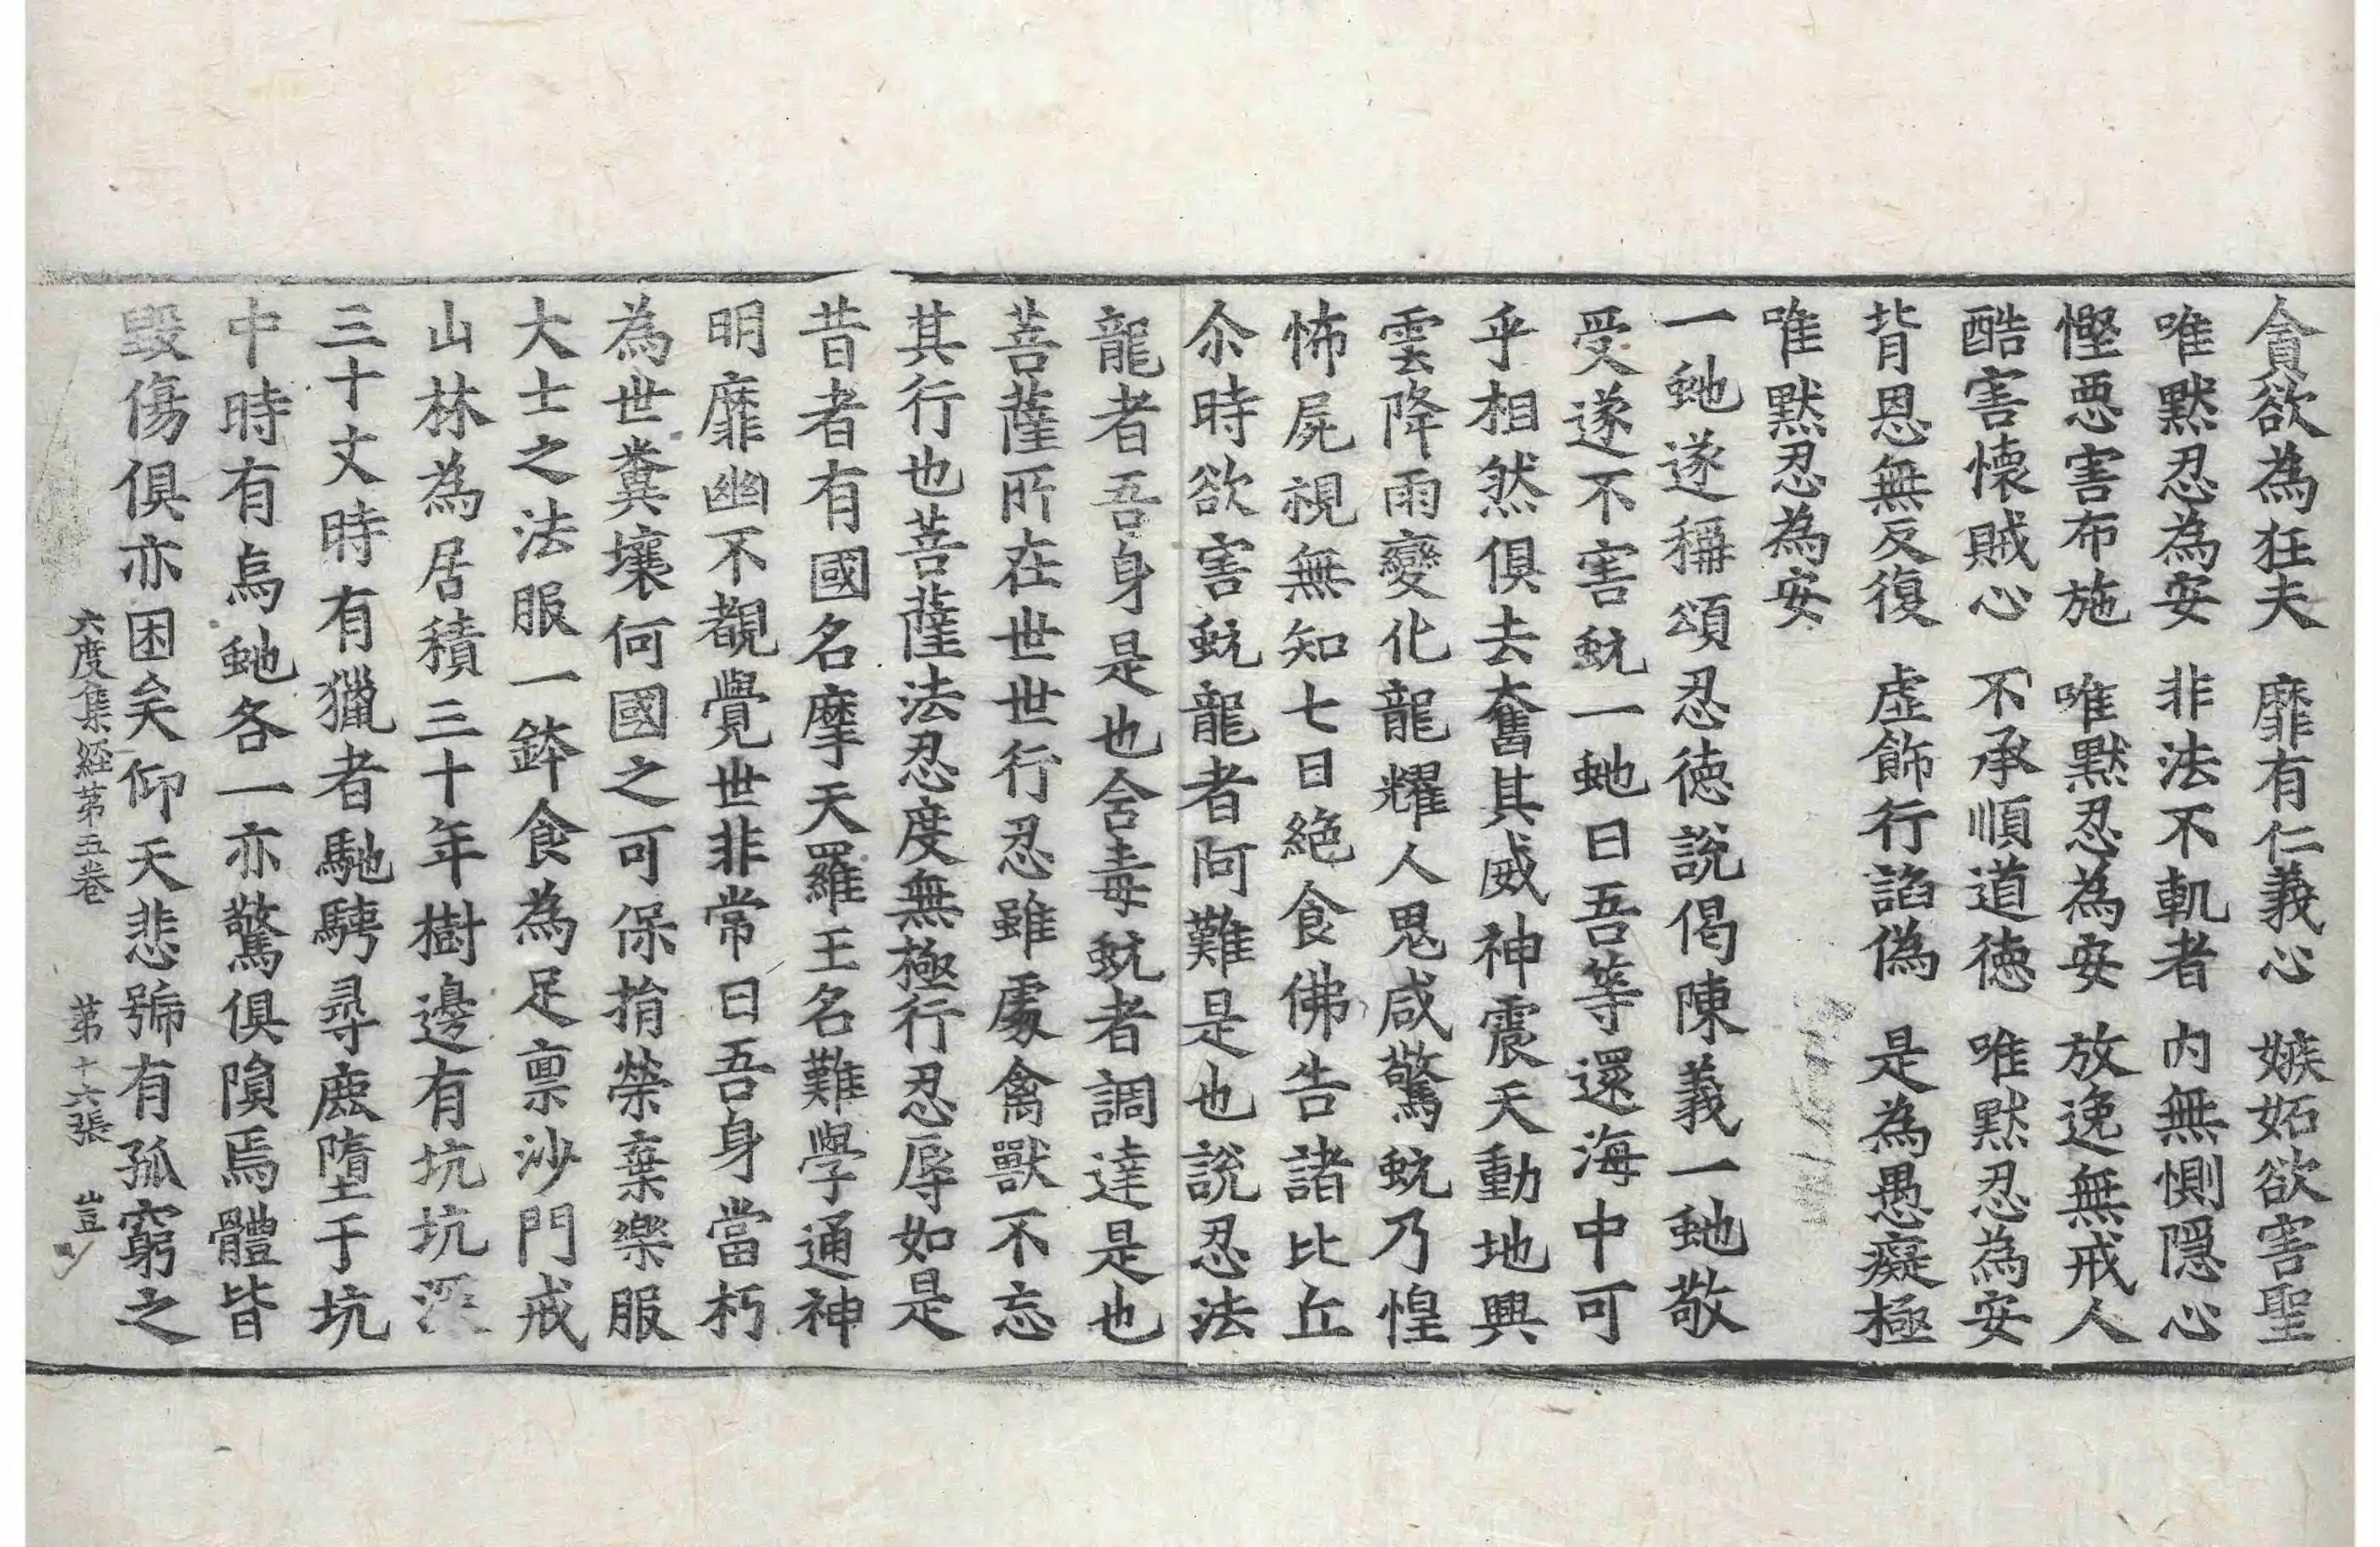 貪欲為狂夫　靡有仁義心　嫉妬欲害聖
唯默忍為安　非法不軌者　内無惻隠心
慳悪害布施　唯黙忍為安　放逸無戒人
酷害懐賊心　不承順道徳　唯黙忍為安
背恩無反復　虚飾行諂偽　是為愚癡極
唯黙忍為安
一虵遂稱頌忍徳說偈陳義一虵敬
受遂不害蚖一虵曰吾等還海中可
乎相然俱去奮其威神震天動地興
雲降雨變化龍耀人鬼咸驚蚖乃惶
怖屍視無知七日絶食佛告諸比丘
尒時欲害蚖龍者阿難是也說忍法
龍者吾身是也含毒蚖者調達是也
菩薩所在世世行忍雖處禽獸不忘
其行也菩薩法忍度無極行忍辱如是
昔者有國名摩天羅王名難學通神
明靡幽不覩覺世非常曰吾身當朽
為世糞壤何國之可保捐榮棄樂服
大士之法服一鉢食為足禀沙門戒
山林為居積三十年樹邊有坑坑深
三十丈時有獵者馳騁尋鹿墮于坑
中時有烏虵各一亦驚俱隕焉體皆
毀傷俱亦困矣仰天悲號有孤窮之
六度集経第五卷　第十六張　豈